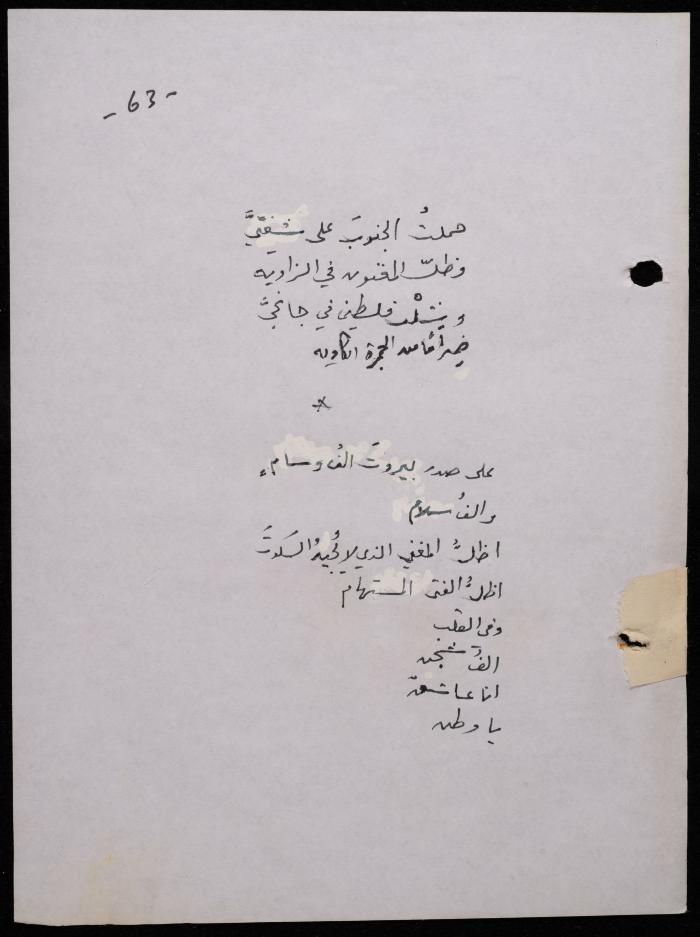 - 63 -
حملتُ الجنوبَ على شفتيَّ
فظلّ المغنون في الزاويه
وينبتُ فلسطين في جانحيَّ
ضراماً من الجمرة الكاويه
*
على صدر بيروتَ الفُ وسامٍ
والفُ سلام
اظلُّ المغني الذي لا يُجيدُ السكوتَ
اظلُّ الفتى المستهام
وفي القلب
الفُ شجن
انا عاشقٌ
يا وطن